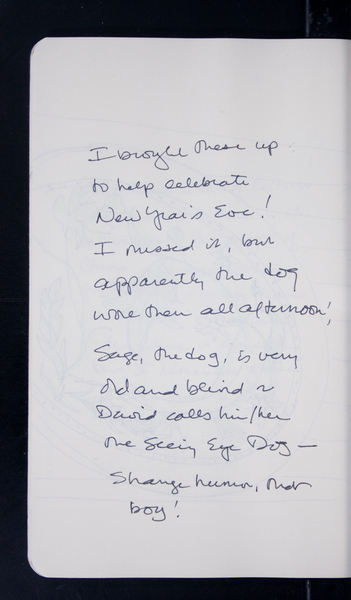 I brought these up
to help celebrate
New Year's Eve!
I missed it, but
apparently the dog
wore them all afternoon!
Sage, the dog, is very
old and blind ~
David calls him/her
the Seeing Eye Dog —
Strange humor, that
boy!